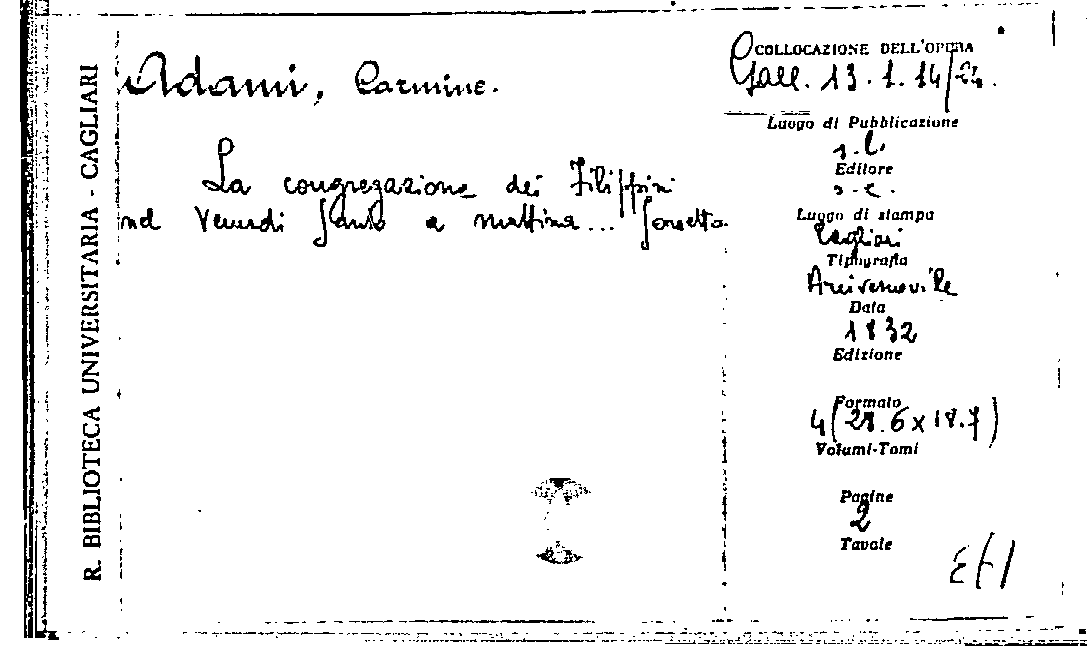 R. BIBLIOTECA UNIVERSITARIA - CAGLIARI
Adami, Carmine.
La congregazione dei Filippini
nel Venerdi Santo a mattina... Sonetto
COLLOCAZIONE DELL'OPERA
Gall. 13.1.14/24.
Luogo di Pubblicazione
s.l.
Editore
s.e.
Luogo di stampa
Cagliari
Tipografia
Arcivescovile
Data
1832
Edizione
Formato
4(28.6x18.7)
Volumi-Tomi
Pagine
2
Tavole